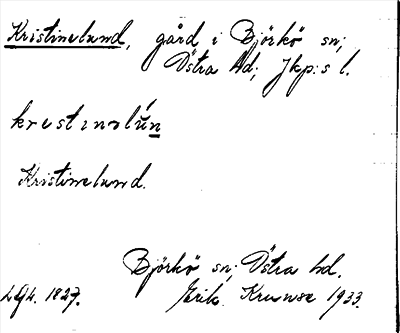 Kristinelund, gård i Björkö sn;
Östra hd; Jkp:s l.
krestinəlún
Kristinelund.
Björkö sn; Östra hd.
LGL. 1827. Erik Krunse 1933.